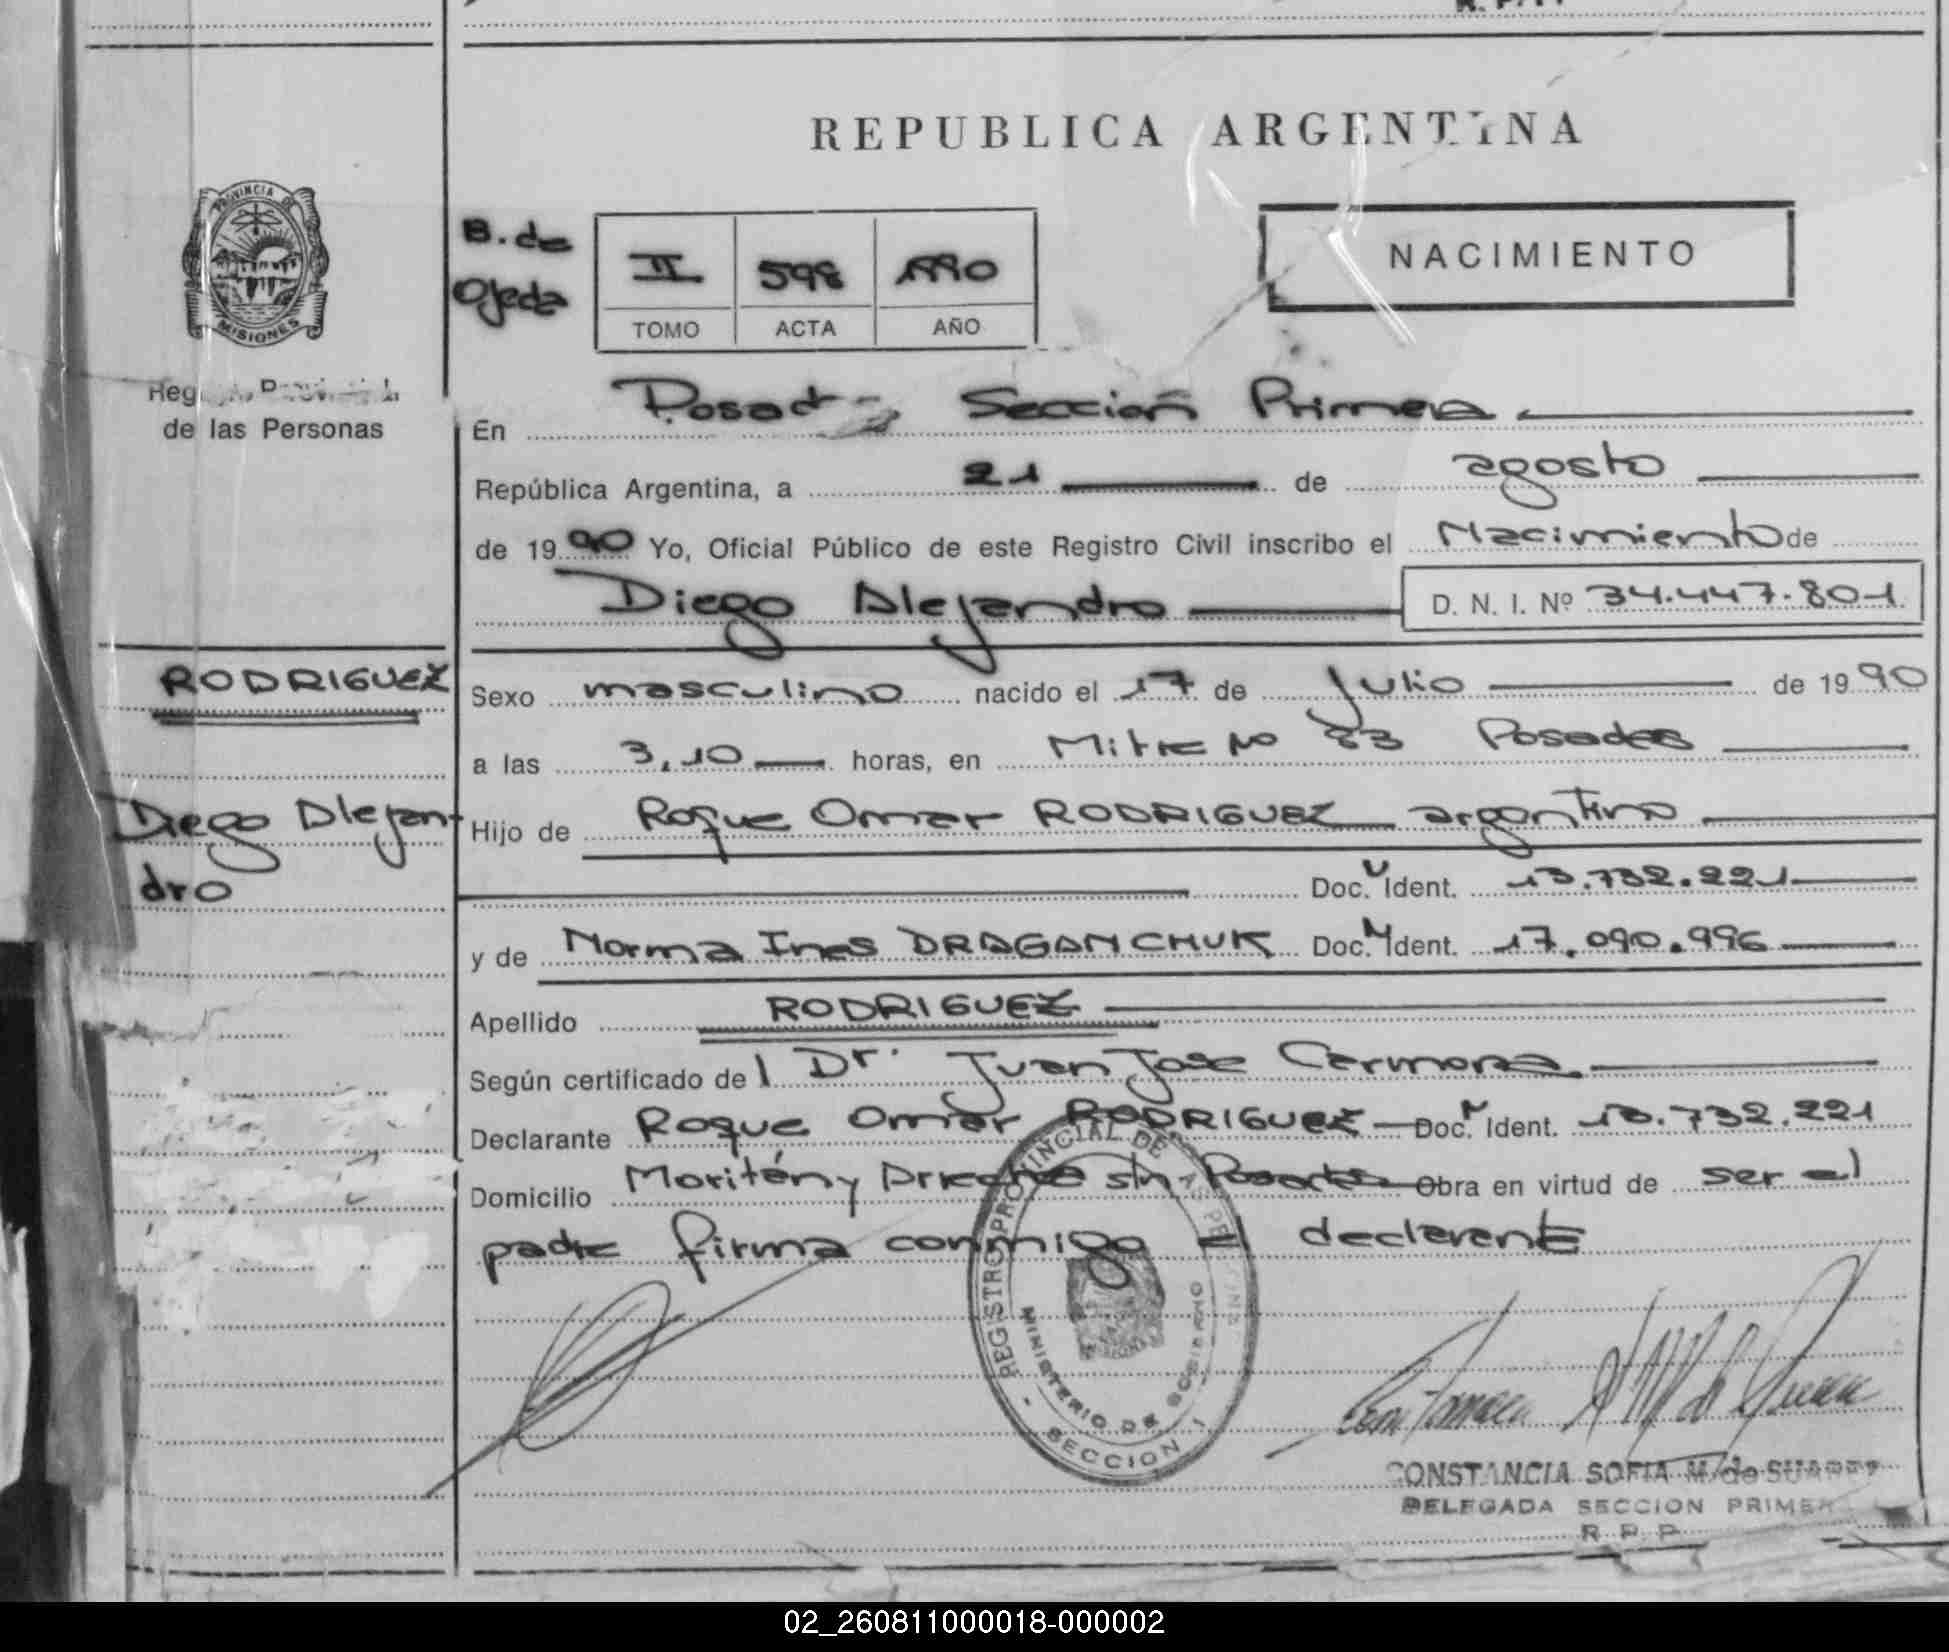 REPUBLICA ARGENTINA
PROVINCIA DE
MISIONES
B. de
Ojeda
II 598 1990
TOMO ACTA AÑO
NACIMIENTO
Registro Provincial
de las Personas
En Posadas Sección Primera
República Argentina, a 21 de agosto
de 1990 Yo, Oficial Público de este Registro Civil inscribo el Nacimiento de
Diego Alejandro D. N. I. Nº 34.447.801
RODRIGUEZ
Sexo masculino nacido el 17 de Julio de 1990
a las 3,10 horas, en Mitre Nº 83 Posadas
Diego Alejan-
dro
Hijo de Roque Omar RODRIGUEZ argentino
Doc. Ident. 13.732.221
y de Norma Ines DRAGANCHUK Doc. Ident. 17.090.996
Apellido RODRIGUEZ
Según certificado del Dr. Juan Jose Carmona
Declarante Roque Omar RODRIGUEZ Doc. Ident. 13.732.221
Domicilio y s/n Posadas Obra en virtud de ser el
padre firma conmigo el declarante
REGISTRO PROVINCIAL DE LAS PERSONAS
MINISTERIO DE GOBIERNO
MISIONES
- SECCION 1
CONSTANCIA SOFIA M. de SUAREZ
DELEGADA SECCION PRIMERA
R. P. P.
02_260811000018-000002